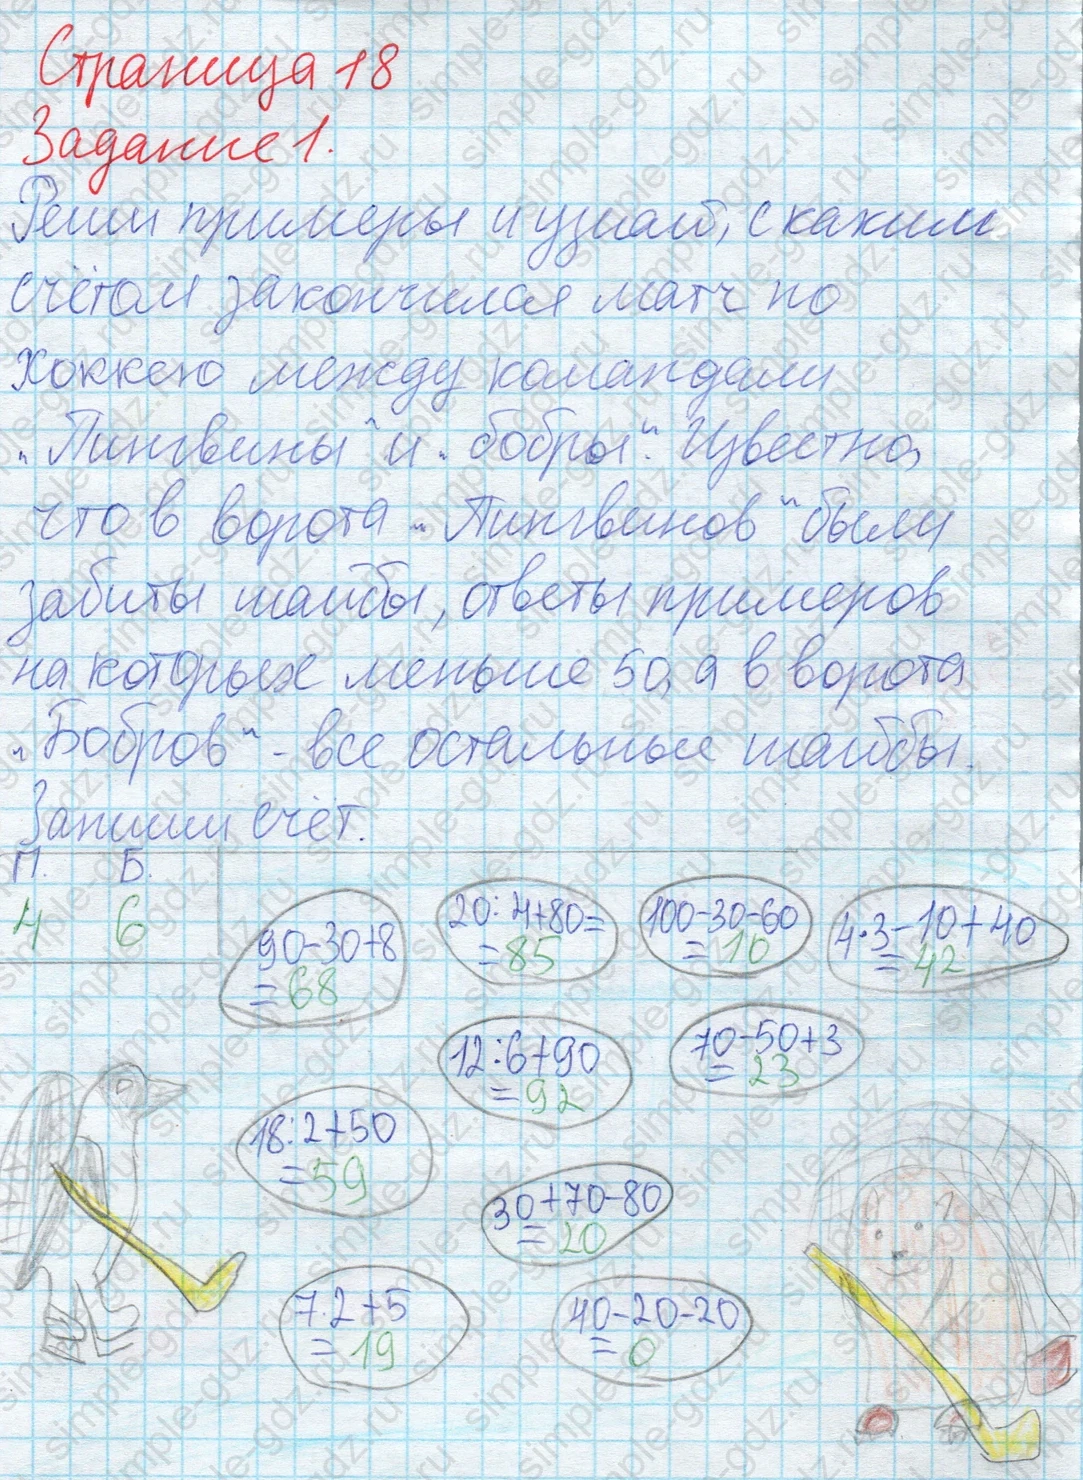 Страница 18
Задание 1.
Реши примеры и узнай, с каким
счётом закончился матч по
хоккею между командами
„Пингвины“ и „бобры“. Известно,
что в ворота „Пингвинов“ были
забиты шайбы, ответы примеров
на которых меньше 50, а в ворота
„Бобров“ - все остальные шайбы.
Запиши счёт.
П. Б.
4 6
90-30+8
=68
20:4+80=
=85
100-30-60
=10
4·3-10+40
=42
12:6+90
=92
70-50+3
=23
18:2+50
=59
30+70-80
=20
7·2+5
=19
40-20-20
=0
simple-gdz.ru